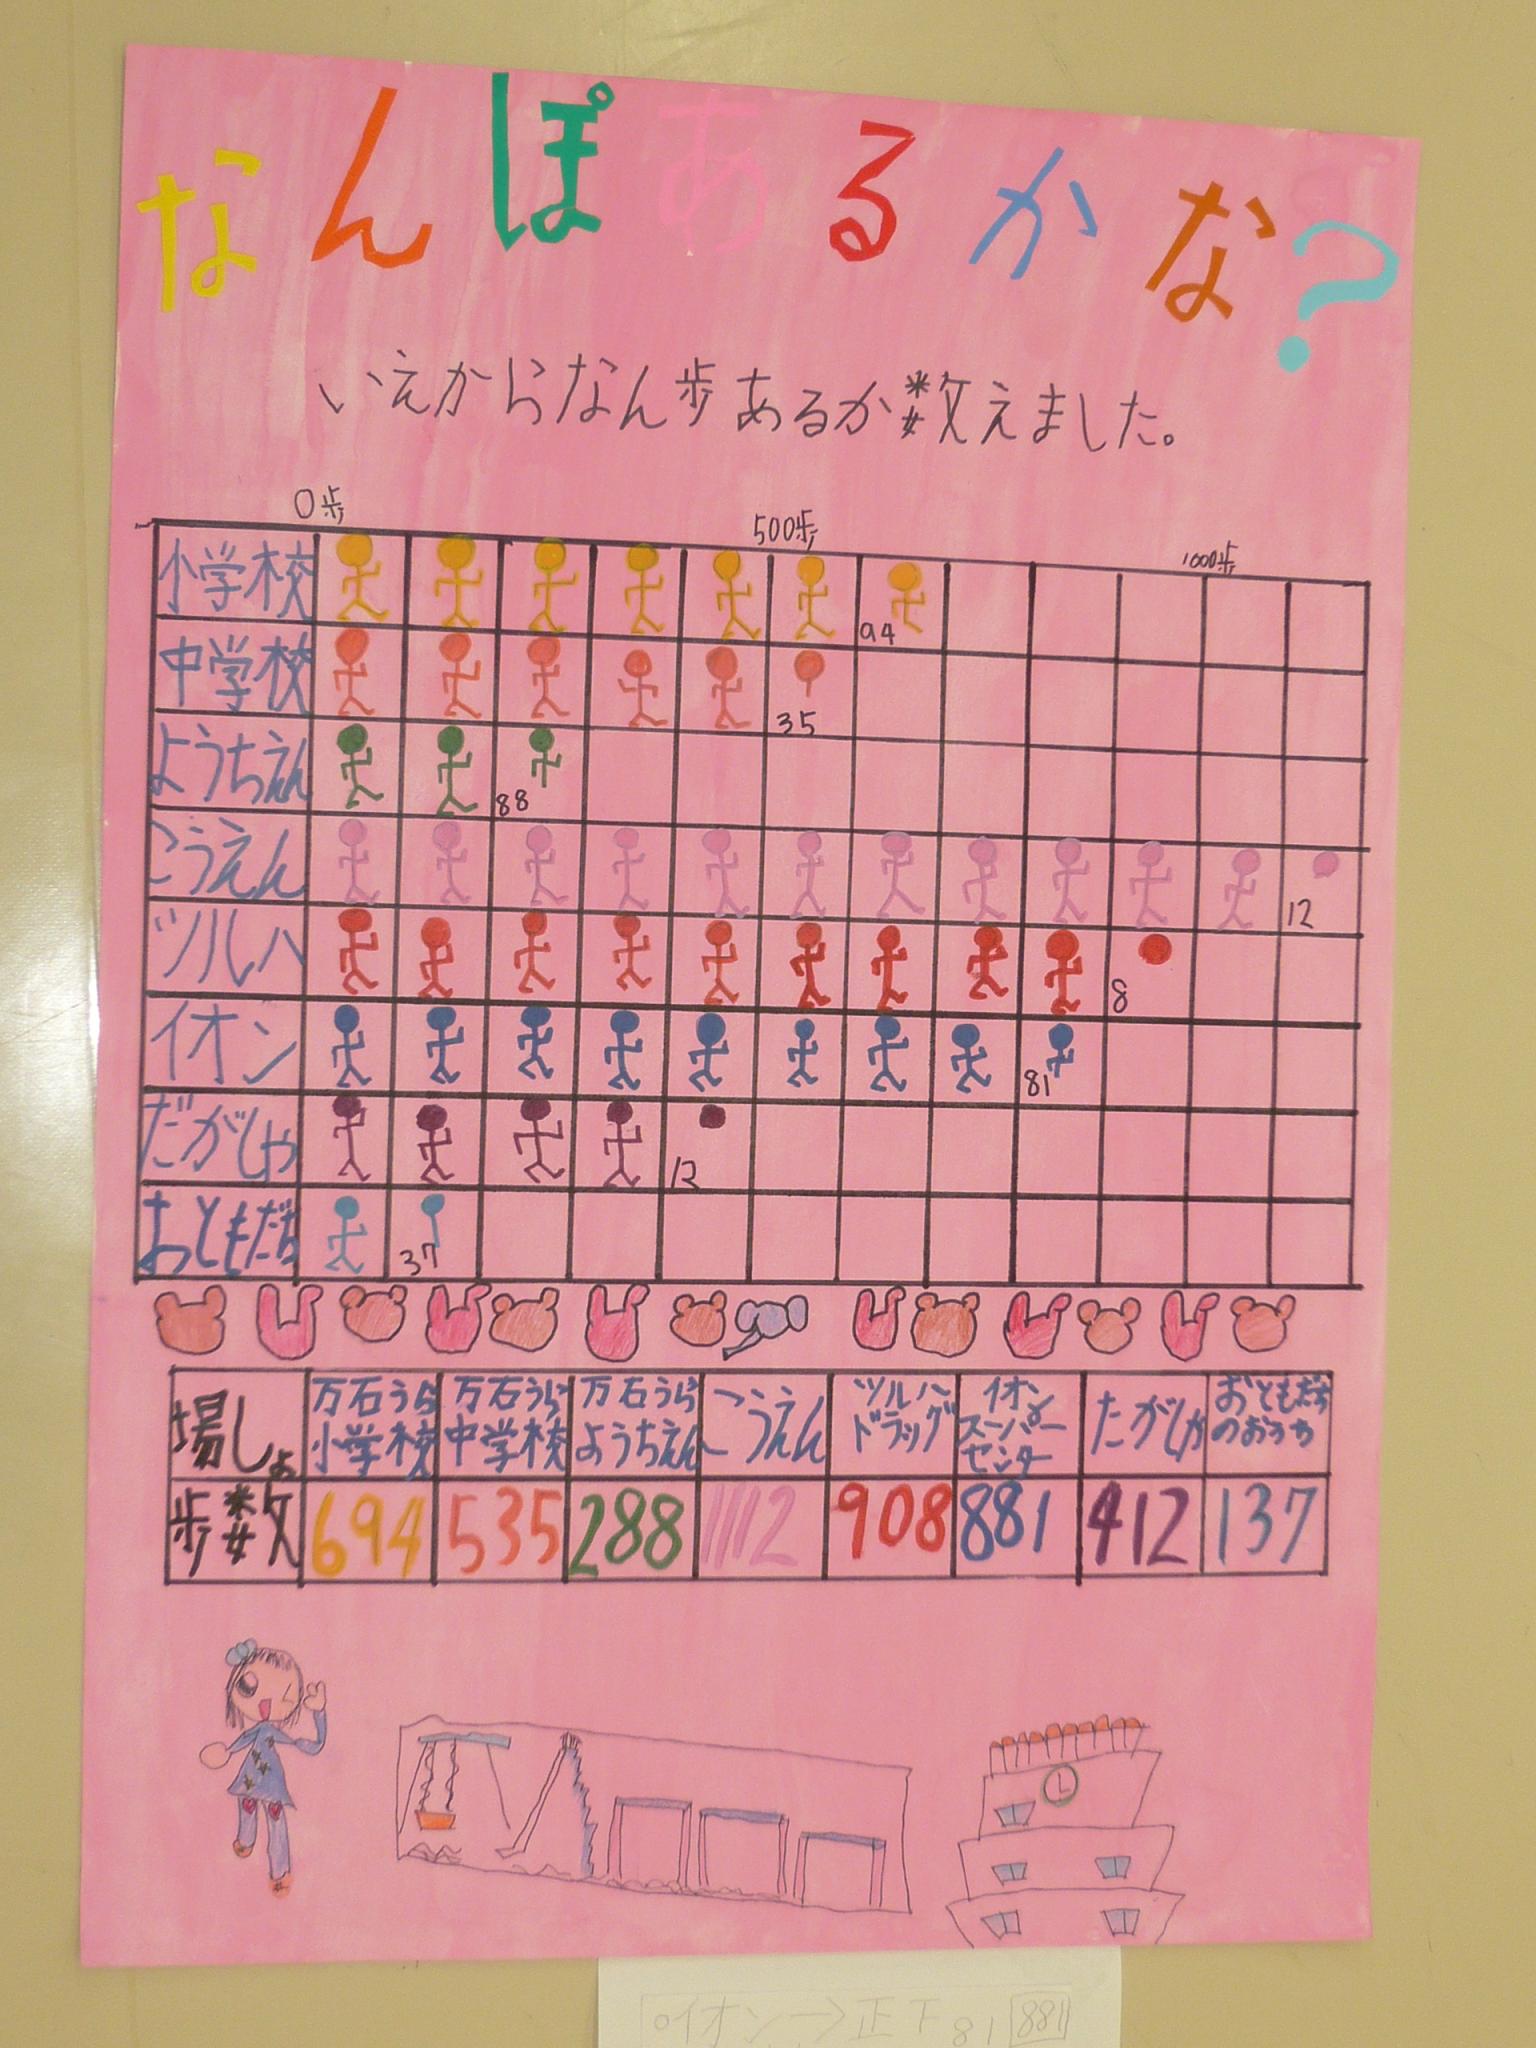 なんぽあるかな?
いえからなん歩あるか数えました。
0歩 500歩 1000歩
小学校 94
中学校 35
ようちえん 88
こうえん 12
ツルハ 8
イオン 81
だがしや 12
おともだち 37
場しょ 万石うら小学校 万石うら中学校 万石うらようちえん こうえん ツルハドラッグ イオンスーパーセンター だがしや おともだちのおうち
歩数 694 535 288 1112 908 881 412 137
イオン→正下 81 881